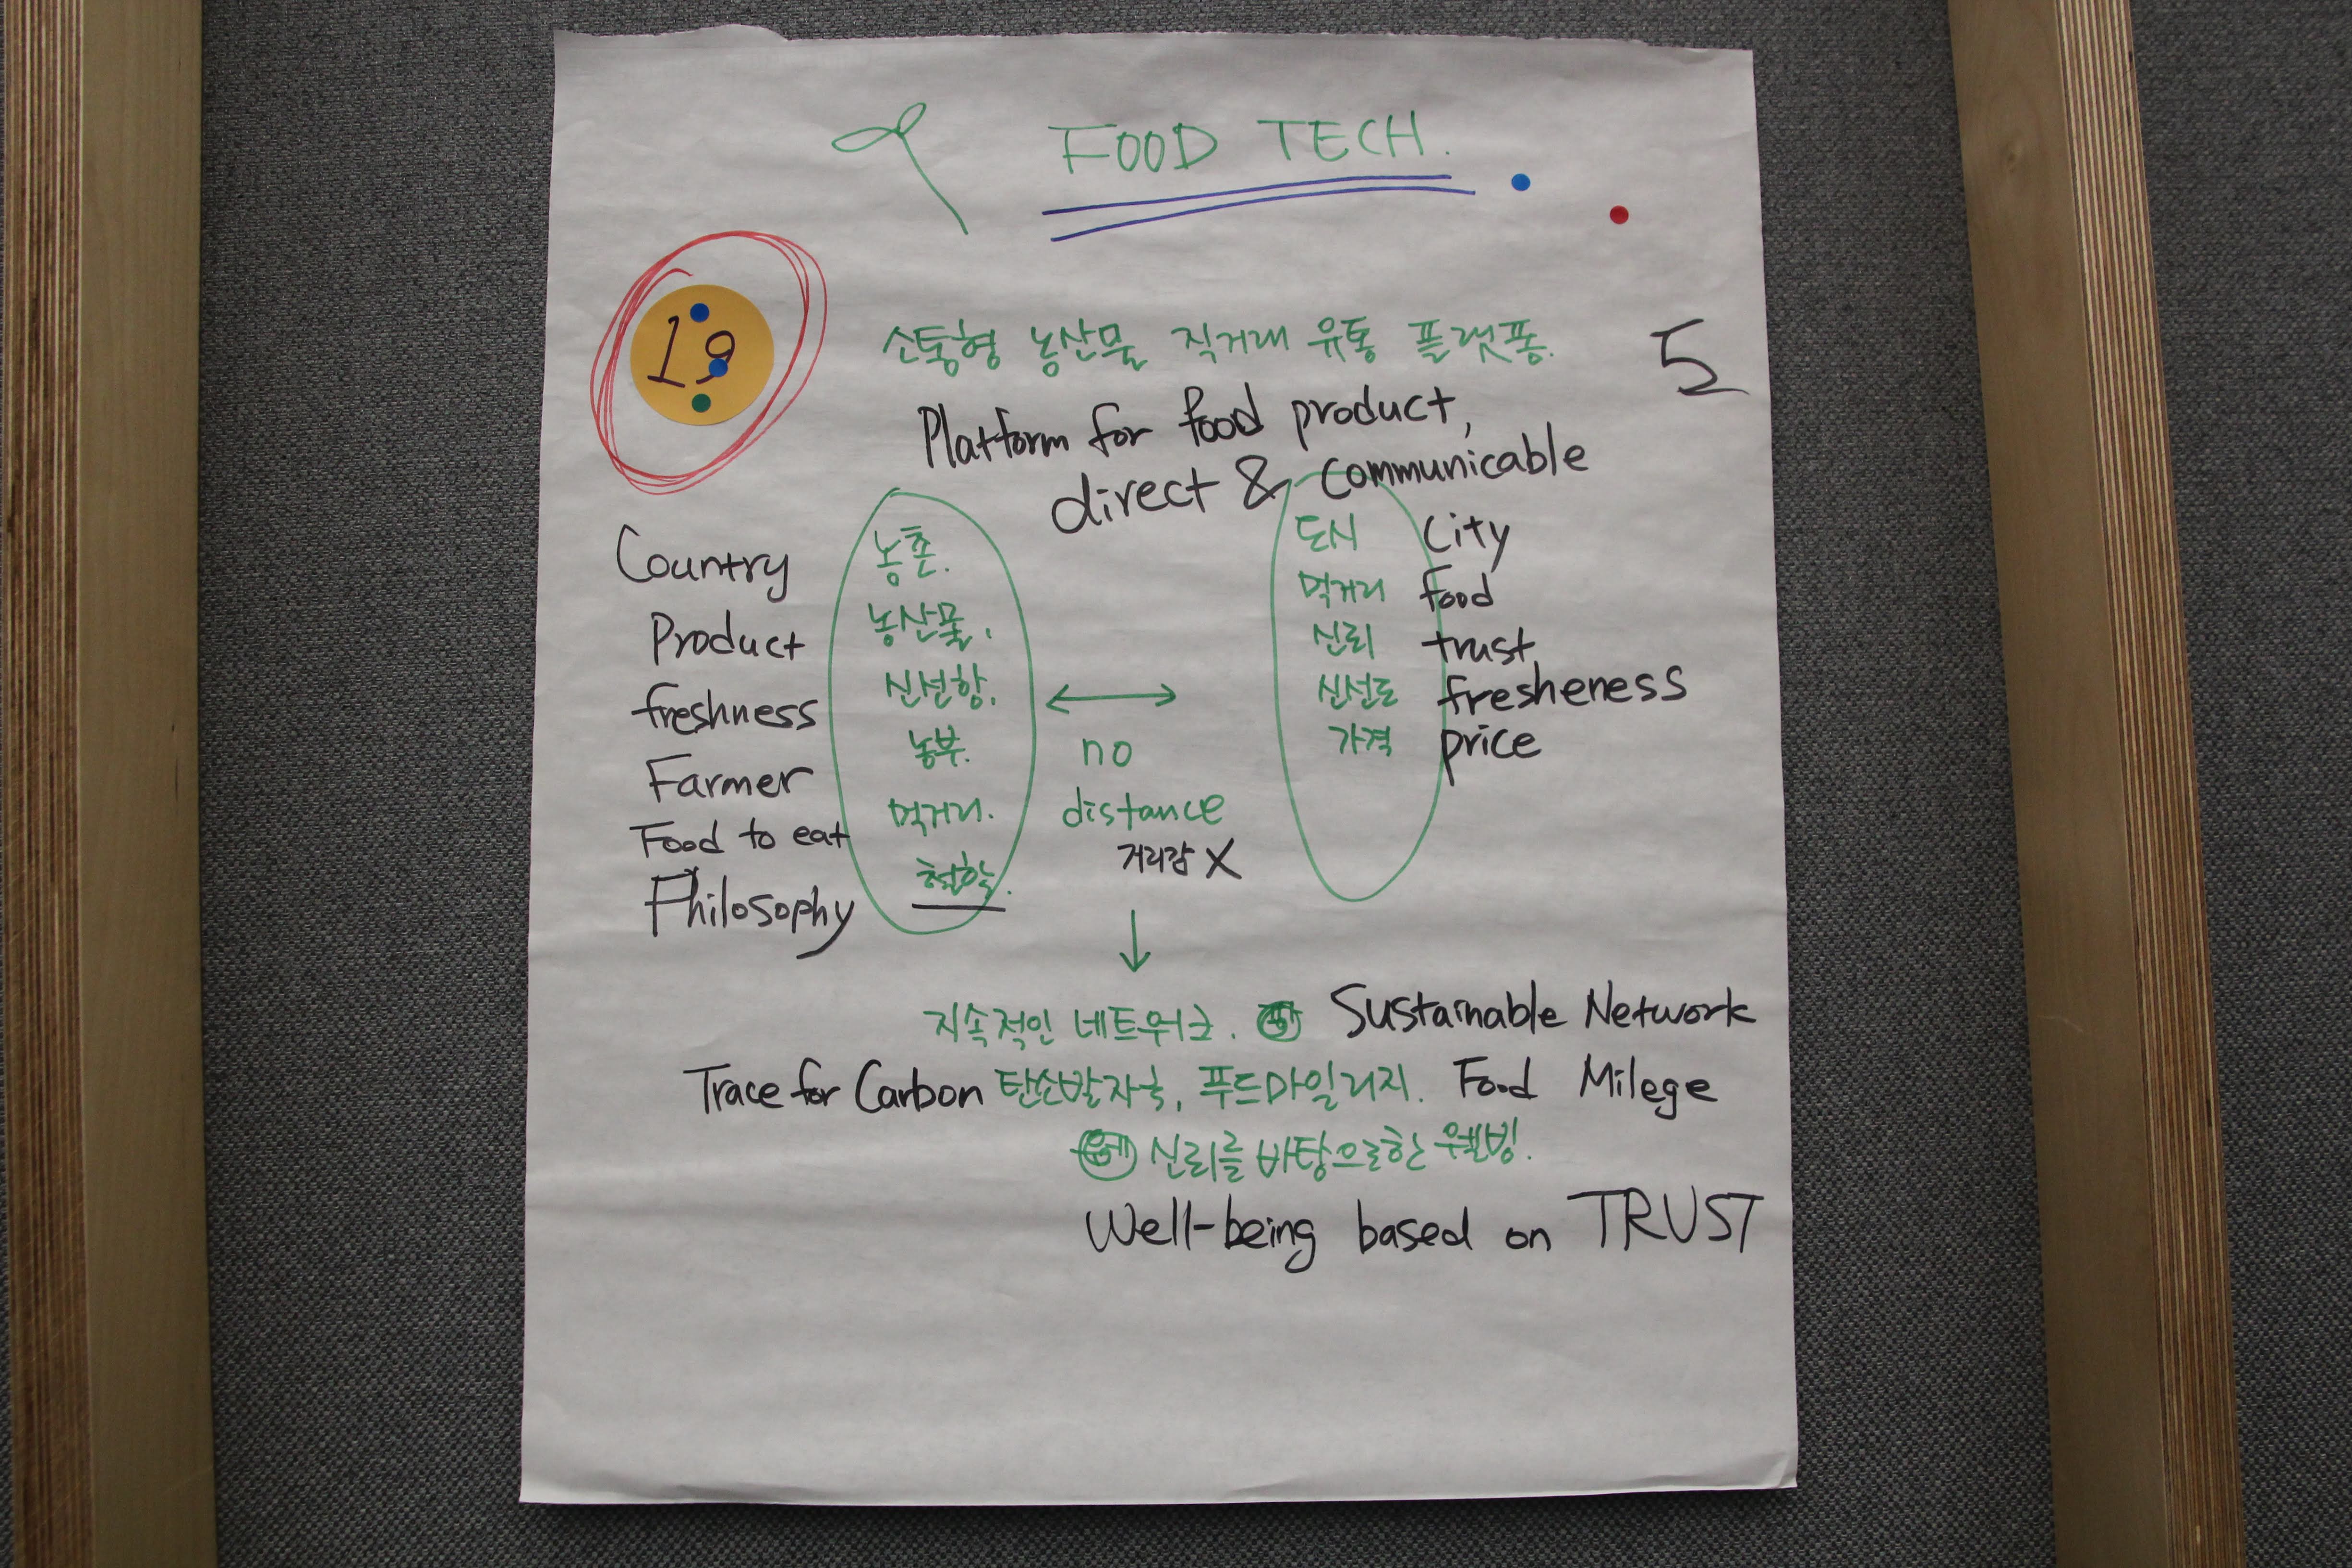 FOOD TECH.
19
소통형 농산물 직거래 유통 플랫폼.
5
Platform for food product,
direct & communicable
Country 농촌.
Product 농산물.
freshness 신선함.
Farmer 농부.
Food to eat 먹거리.
Philosophy 철학.
no
distance
거리감 X
도시 City
먹거리 food
신뢰 trust
신선도 fresheness
가격 price
지속적인 네트워크. Sustainable Network
Trace for Carbon 탄소발자국, 푸드마일리지. Food Milege
신뢰를 바탕으로한 웰빙.
Well-being based on TRUST